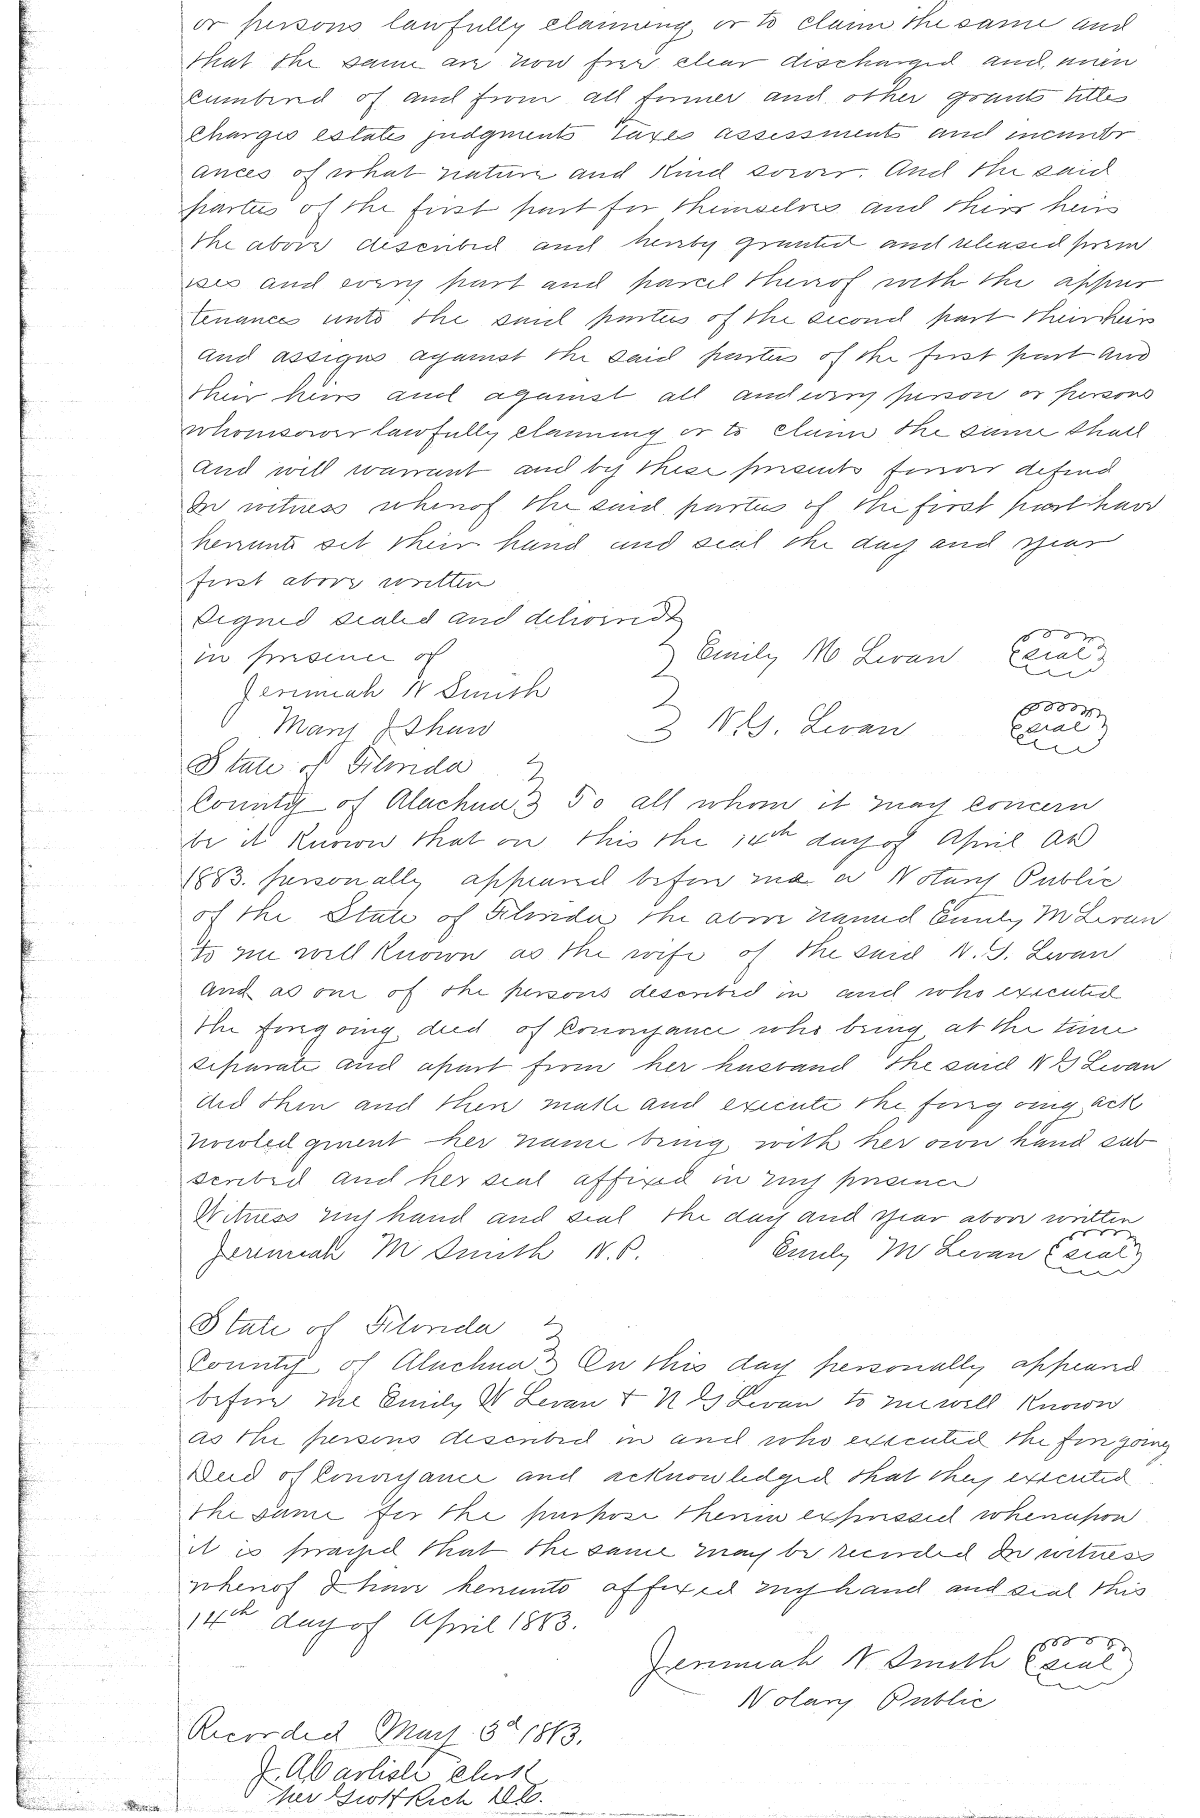 or persons lawfully claiming or to claim the same and
that the same are now free clear discharged and unin
cumbered of and from all former and other grants titles
charges estates judgments taxes assessments and incumbr
ances of what nature and kind soever. And the said
parties of the first part for themselves and their heirs
the above described and hereby granted and released prem
ises and every part and parcel thereof with the appur
tenances unto the said parties of the second part their heirs
and assigns against the said parties of the first part and
their heirs and against all and every person or persons
whomsoever lawfully claiming or to claim the same shall
and will warrant and by these presents forever defend
In witness whereof the said parties of the first part have
hereunto set their hand and seal the day and year
first above written
Signed sealed and delivered
in presence of Emily M Levan seal
Jeremiah N Smith
Mary J Shaw N.G. Levan seal
State of Florida
County of Alachua To all whom it may concern
be it known that on this the 14th day of April AD
1883. personally appeared before me a Notary Public
of the State of Florida the above named Emily M Levan
to me well known as the wife of the said N. G. Levan
and as one of the persons described in and who executed
the foregoing deed of Conveyance who being at the time
separate and apart from her husband the said N G Levan
did then and there make and execute the foregoing ack
nowledgment her name being with her own hand sub
scribed and her seal affixed in my presence
Witness my hand and seal the day and year above written
Jeremiah M Smith N.P. Emily M Levan seal
State of Florida
County of Alachua On this day personally appeared
before me Emily W Levan + N G Levan to me well known
as the persons described in and who executed the foregoing
Deed of Conveyance and acknowledged that they executed
the same for the purpose therein expressed whereupon
it is prayed that the same may be recorded In witness
whereof I have hereunto affixed my hand and seal this
14th day of April 1883.
Jeremiah N Smith seal
Notary Public
Recorded May 3d 1883.
J. A Carlisle Clerk
per Rich D.C.